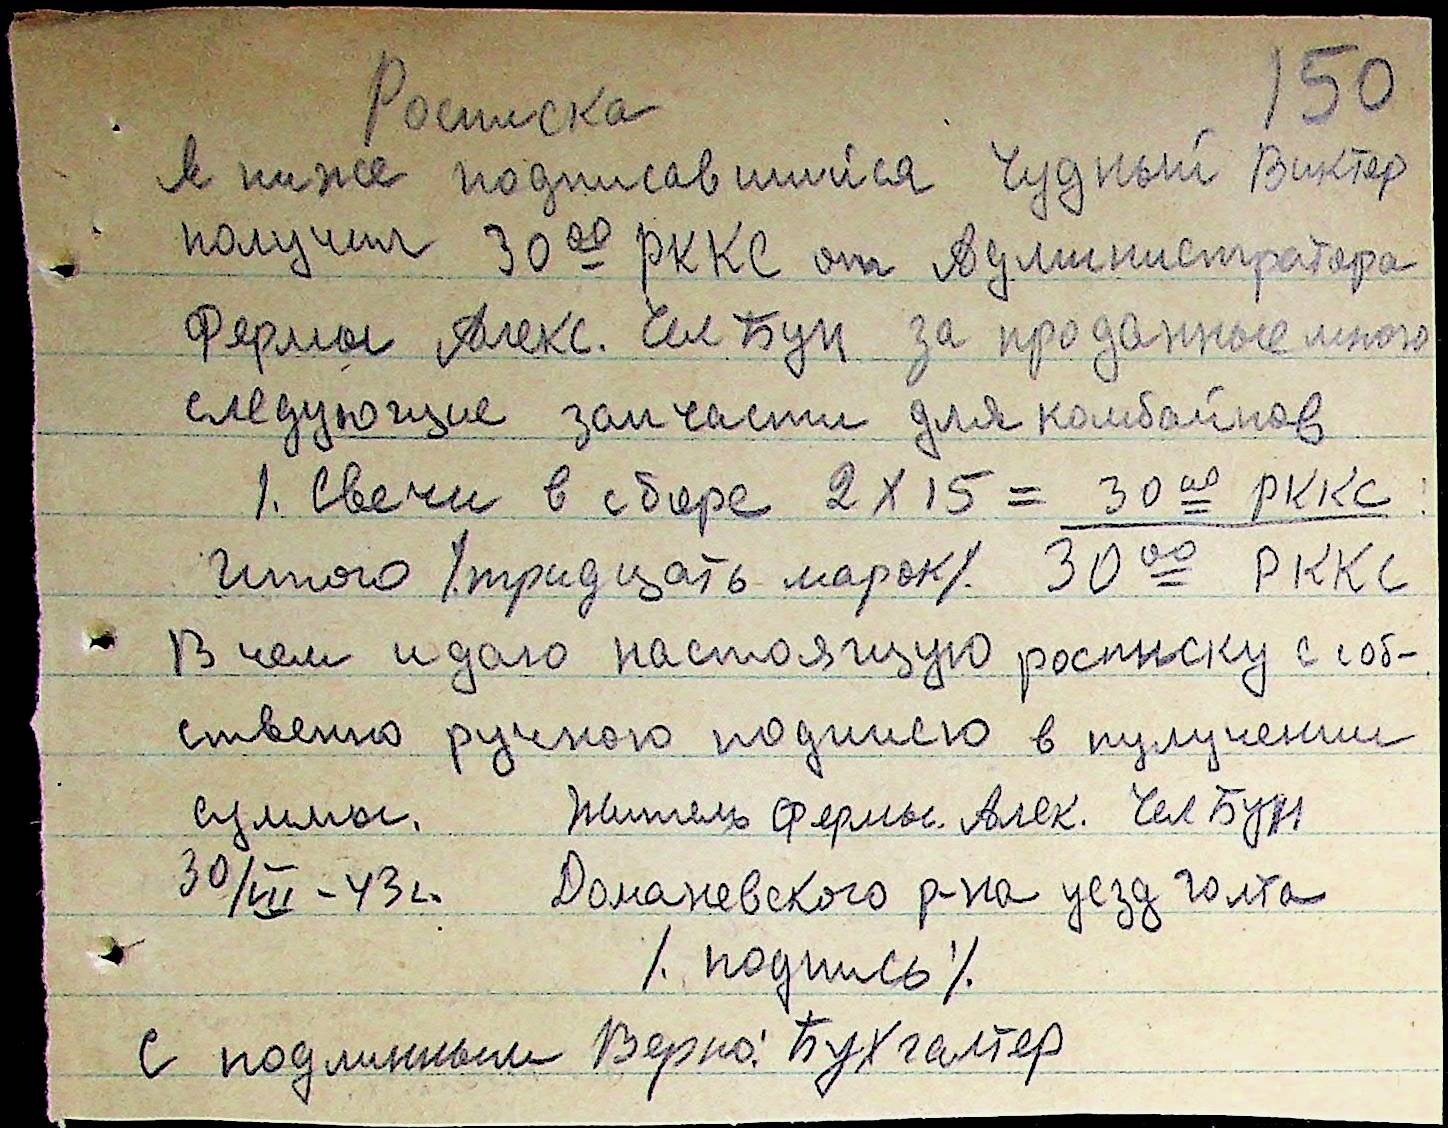 150
Росписка
Я ниже подписавшийся Чудный Виктер
получил 30 00 РККС от Администратора
Фермы Алекс. Чел Бун за проданные мною
следующие запчасти для комбайнов
1. Свечи в сборе 2 X 15 = 30 00 РККС
Итого /тридцать марок/. 30 00 РККС
В чем и даю настоящую росписку с соб-
ственно ручною подписю в пулучении
суммы. Житель Фермы. Алек. Чел Бун
30/VIII - 43г. Доманевского р-на уезд Голта
/. подпись /.
С подлинным Верно: Бухгалтер